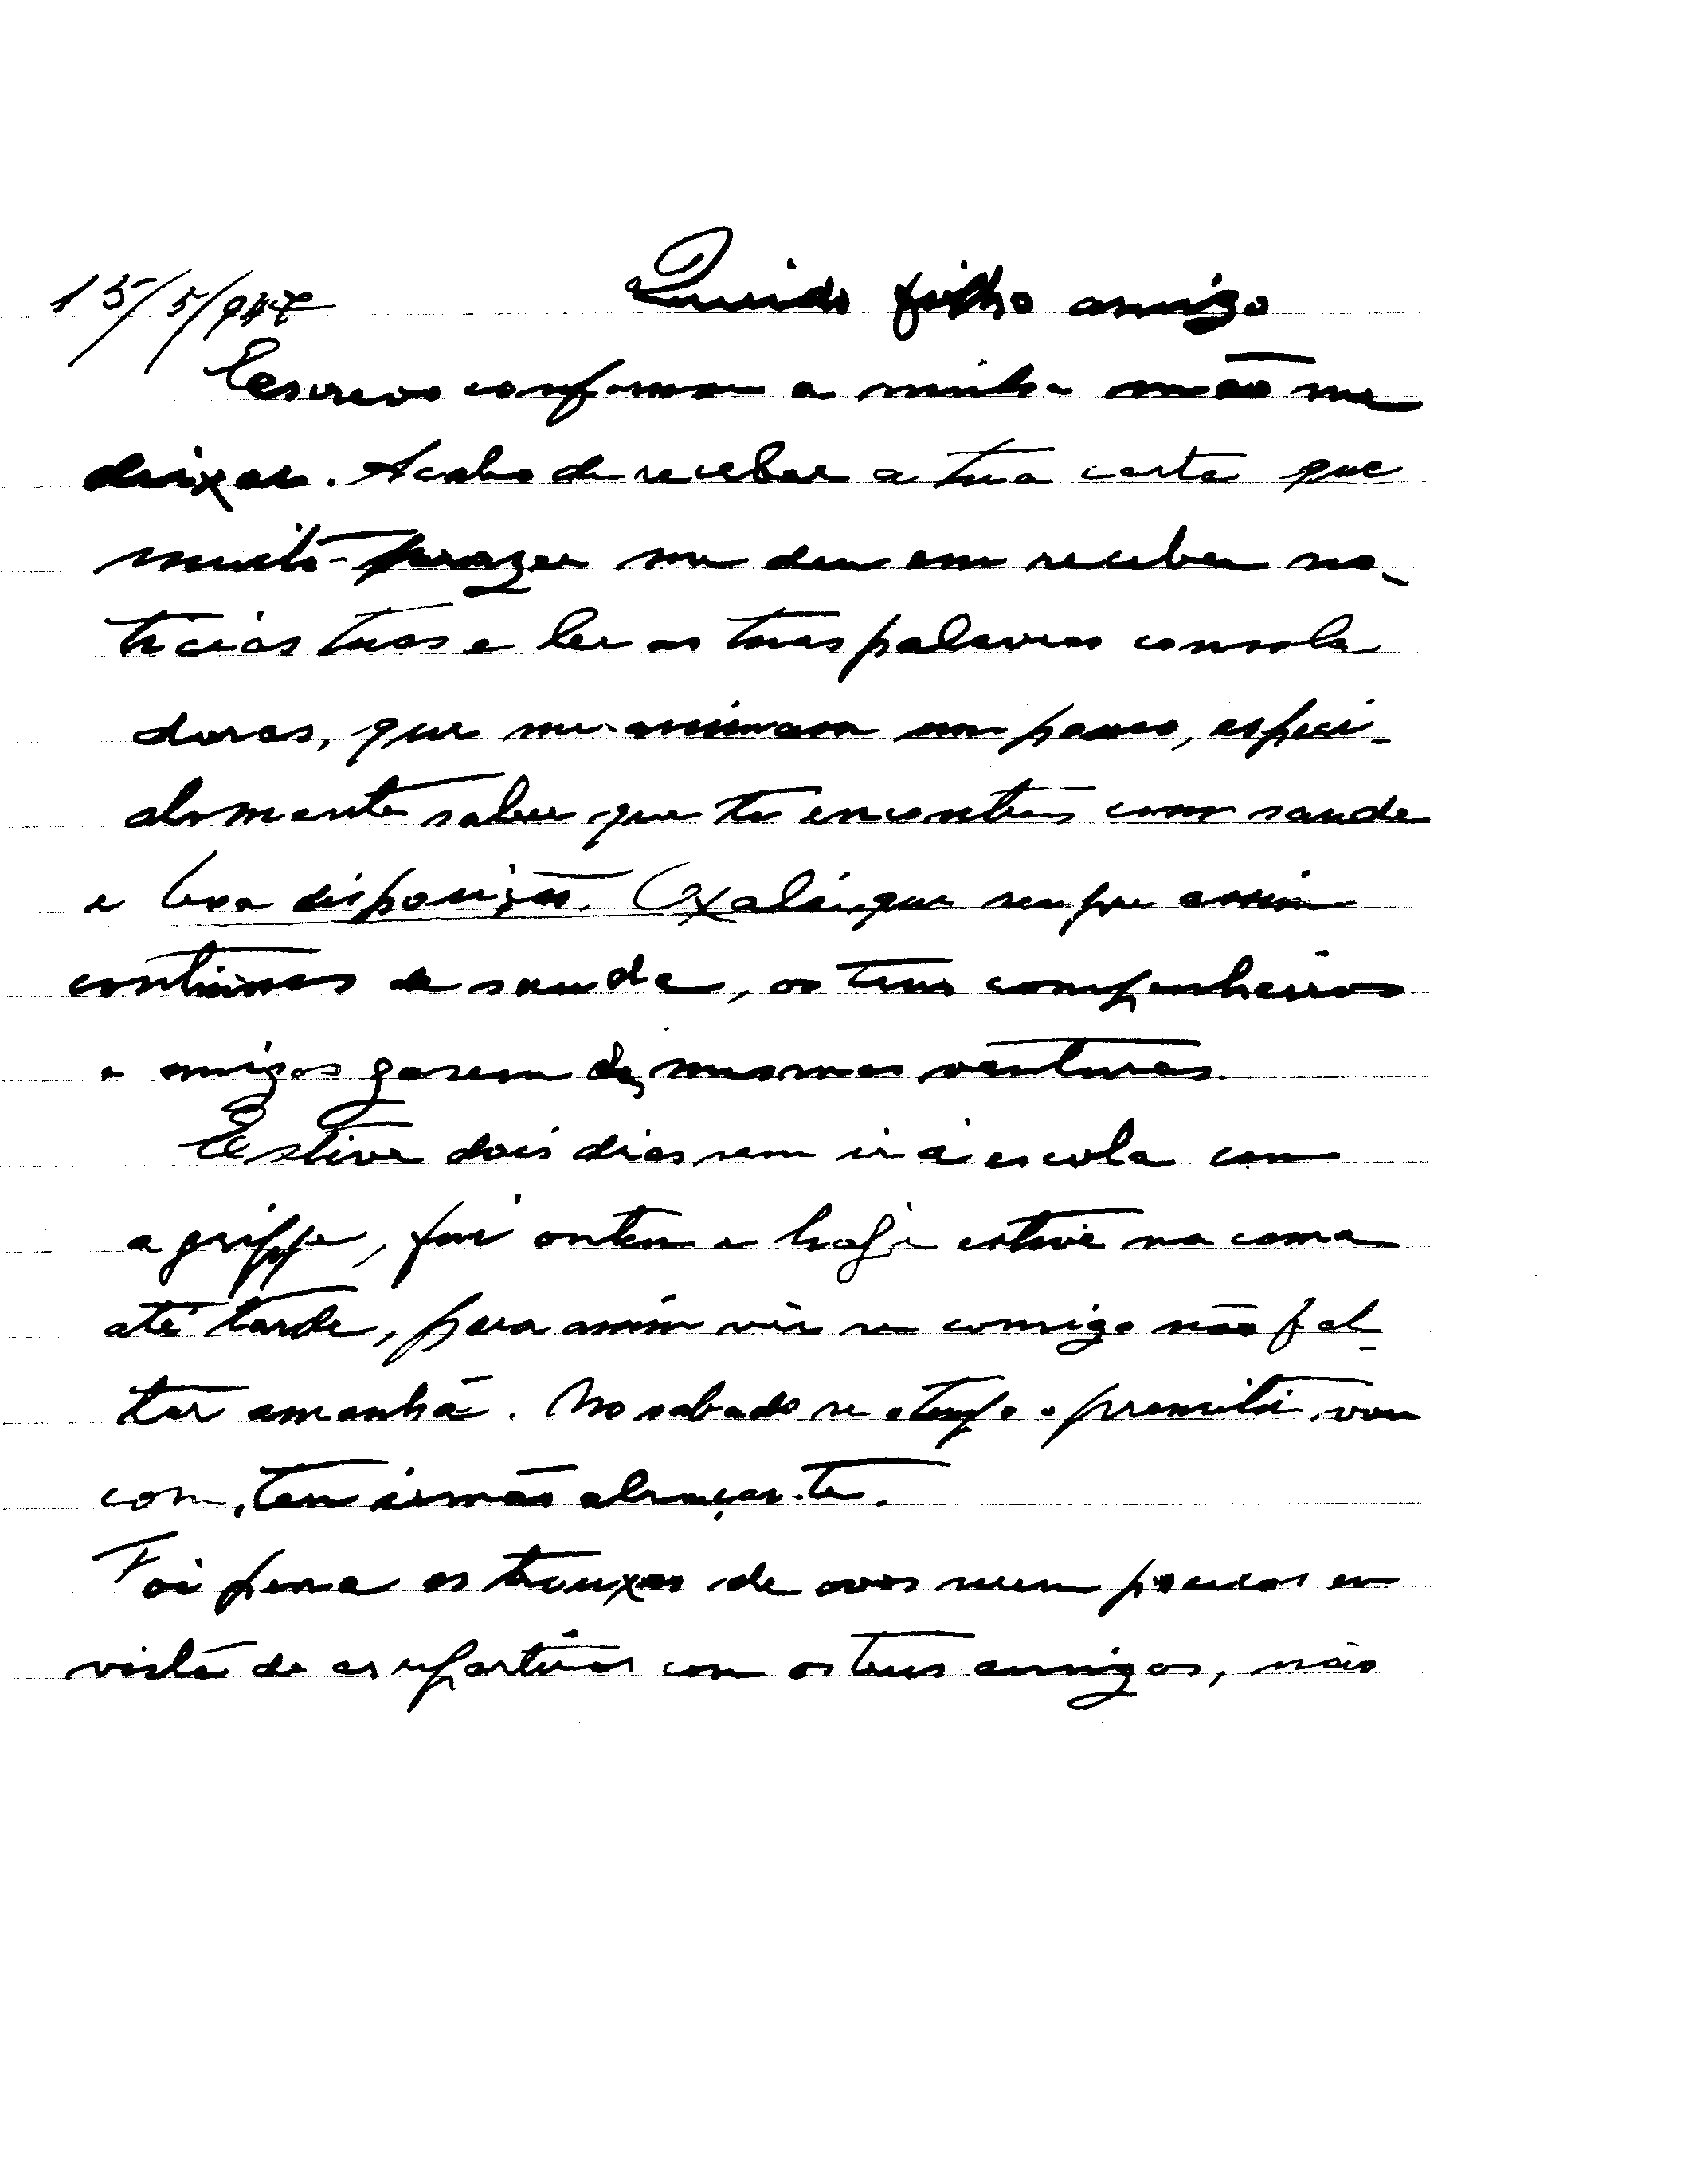 15/5/947 Querido filho amigo
Escrevo conforme a minha mão me
deixar. Acabo de receber a tua carta que
muito prazer me deu em receber no-
ticias tuas e ler as tuas palavras consola
doras, que me animam um pouco, especi-
almente saber que te encontras com saude
e boa disposição. Oxalá que sempre assim
continues de saude, os teus companheiros
e amigos gosem das mesmas venturas.
Estive dois dias sem ir á escola com
a grippe, fui ontem e hoje estive na cama
até tarde, para assim vêr se consigo não fal-
tar amanhã. No sabado se o tempo o premitir, vou
com teu irmão abraçar-te.
Foi pena as trouxas de ovos serem poucas em
vista de as repartires com os teus amigos, não